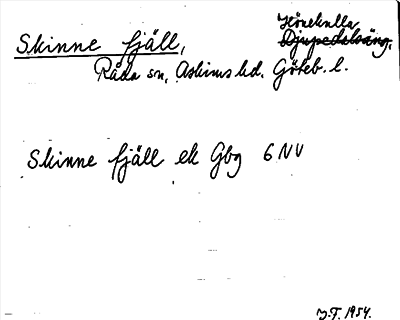 Skinne fjäll, Hönekulla
Djupedalsäng.
Råda sn, Askims hd. Göteb. l.
Skinne fjäll ek Gbg 6 NV
J.T. 1954.